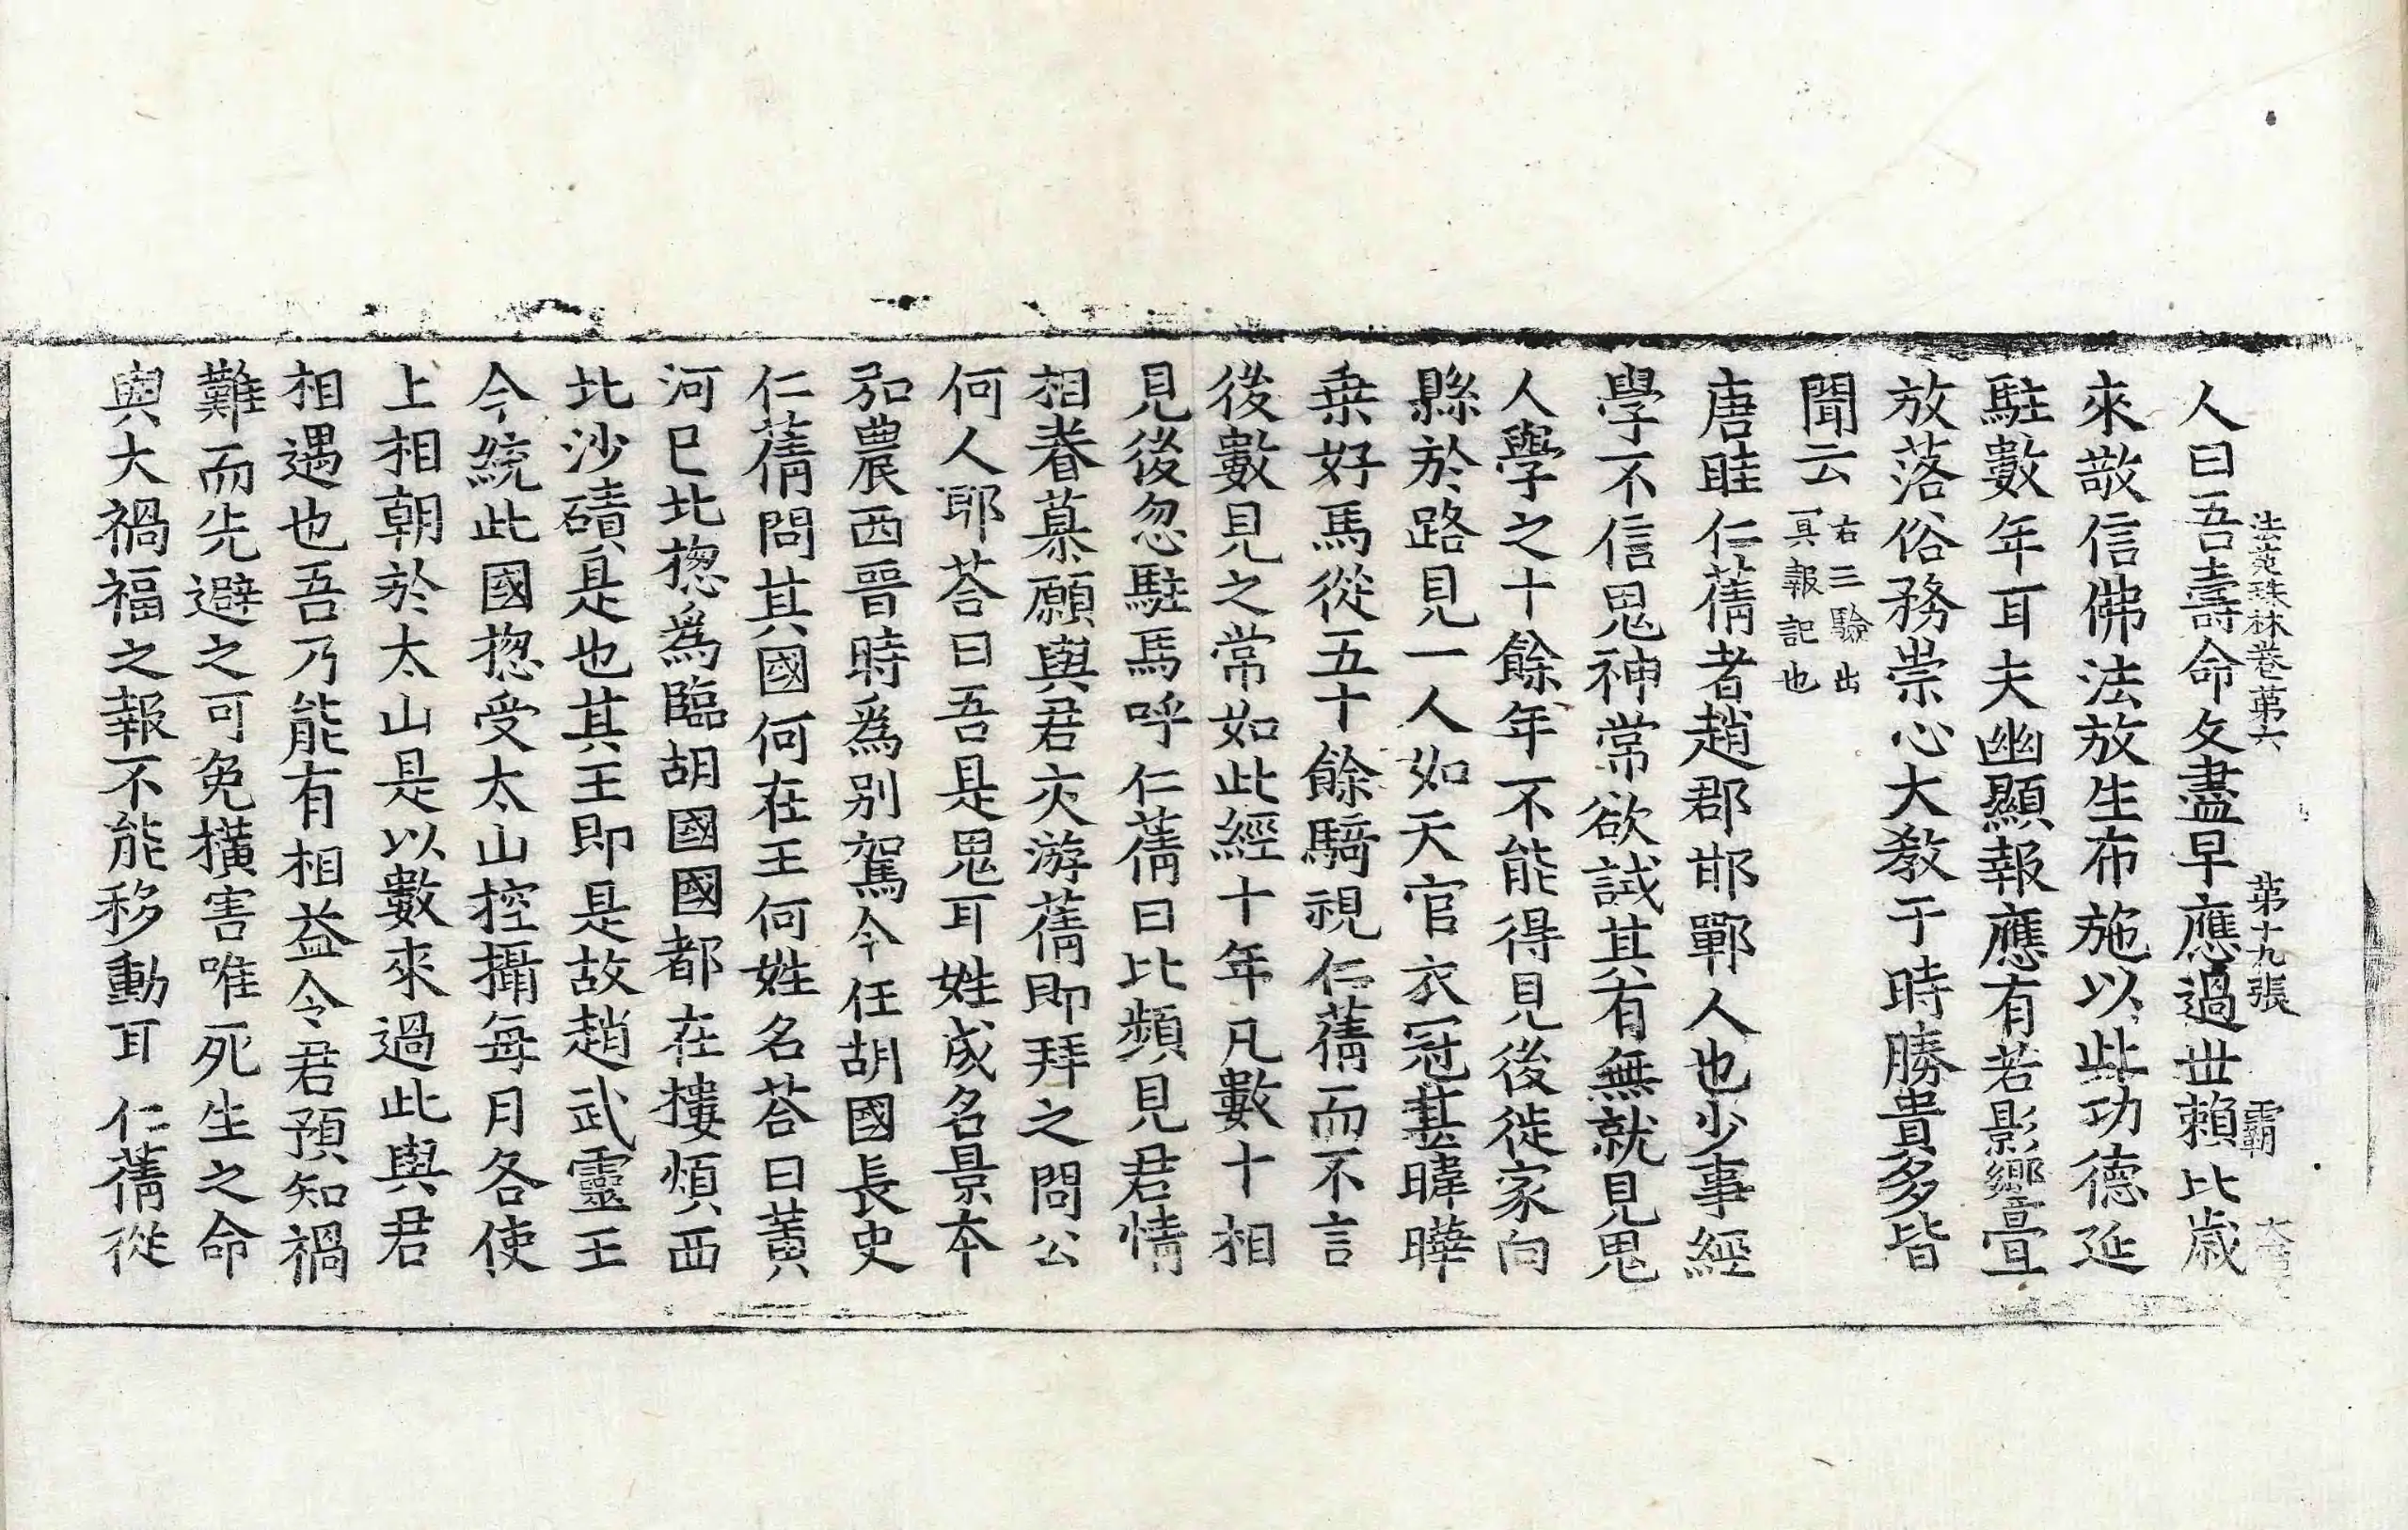 法苑珠林卷第六 第十九張 霸
人曰吾壽命久盡早應過世賴比歲
來敬信佛法放生布施以此功德延
駐數年耳夫幽顯報應有若影響亘
放落俗務崇心大教于時勝貴多皆
聞云右三驗出冥報記也
唐眭仁蒨者趙郡邯鄲人也少事經
學不信鬼神常欲試其有無就見鬼
人學之十餘年不能得見後徙家向
縣於路見一人如大官衣冠甚暐曄
乗好馬從五十餘騎視仁蒨而不言
後數見之常如此經十年凡數十相
見後忽駐馬呼仁蒨曰比頻見君情
相眷慕願與君交游蒨即拜之問公
何人耶荅曰吾是鬼耳姓成名景本
弘農西晉時爲別駕今任胡國長史
仁蒨問其國何在王何姓名荅曰黃
河已北揔爲臨胡國國都在摟煩西
北沙磧是也其王即是故趙武靈王
今統此國揔受太山控攝每月各使
上相朝於太山是以數來過此與君
相遇也吾乃能有相益令君預知禍
難而先避之可免橫害唯死生之命
與大禍福之報不能移動耳仁蒨從